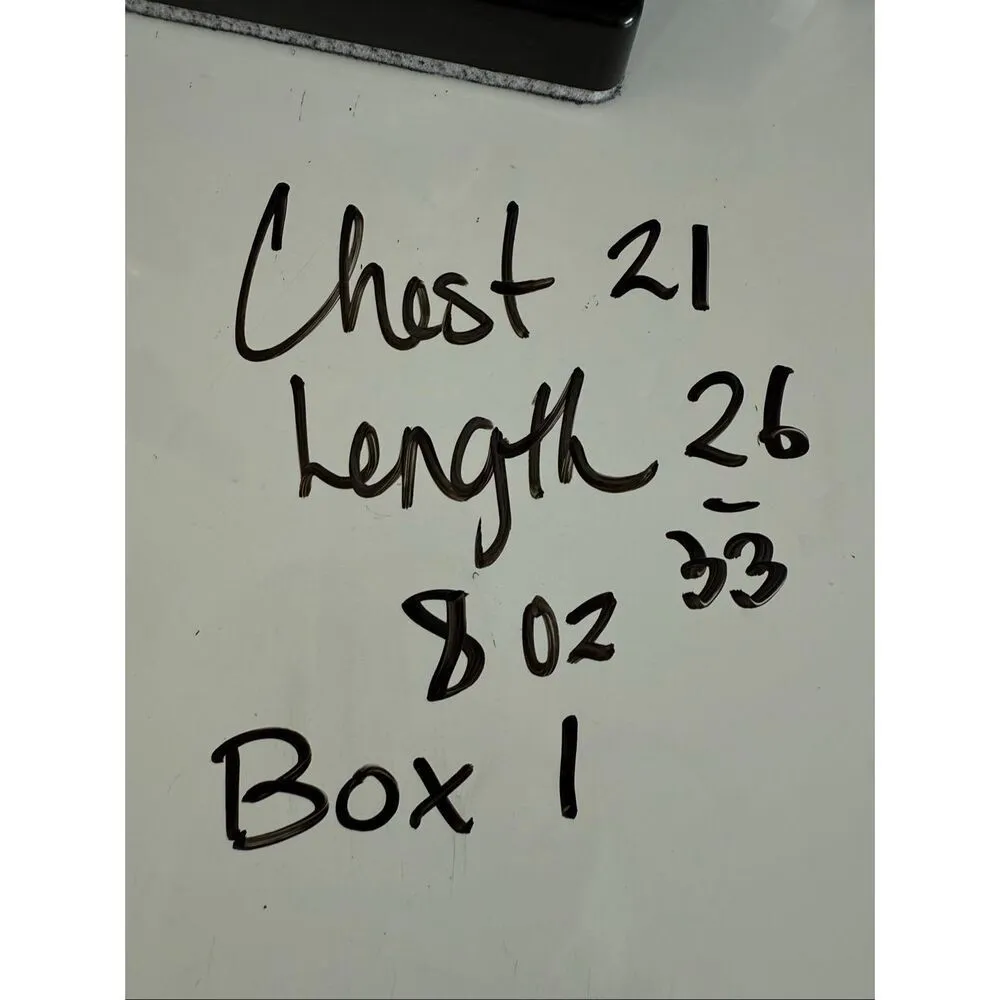 Chest 21
Length 26
-
33
8 oz
Box 1